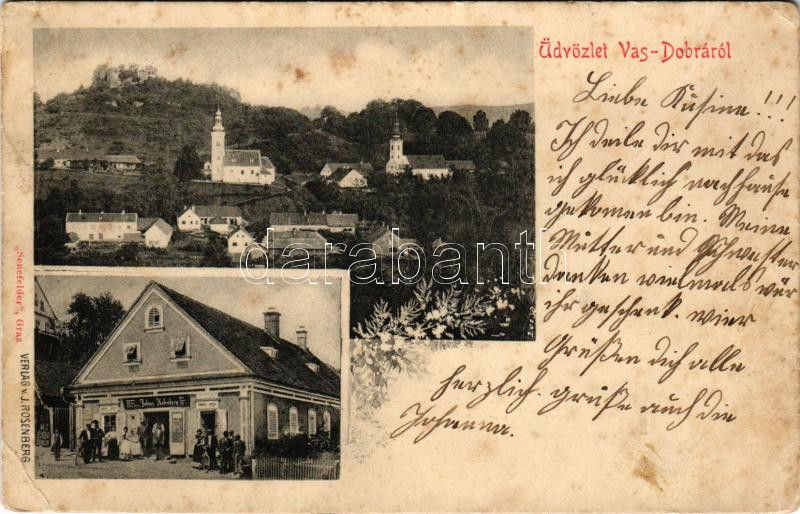 Üdvözlet Vas-Dobráról
Liebe Kusine!!!
Ich deile dir mit das
ich glücklich nachhause
gekomen bin. Meine
Mutter und Schwester
danken vielmals vür
ihr geschenk. wier
Grüßen dich alle
herzlich. grüße auch die
Johanna.
darabanth
"Senefelder", Graz
VERLAG v. J. ROSENBERG